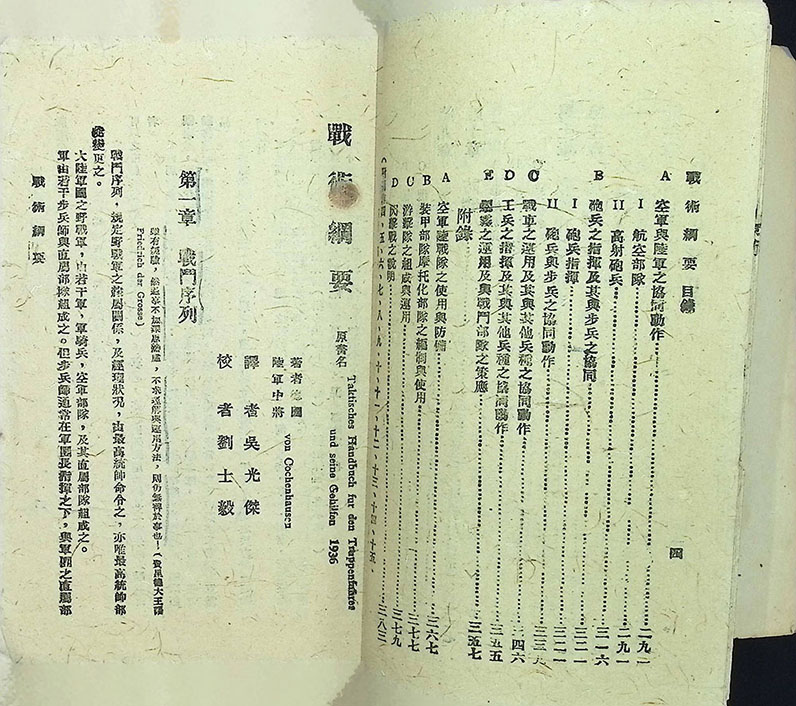 戰術綱要目錄
四
A 空軍與陸軍之協同動作……二九一
I 航空部隊……二九一
II 高射砲兵……三一六
B 砲兵之指揮及其與步兵之協同……三二一
I 砲兵指揮……三二一
II 砲兵與步兵之協同動作……三三
C 戰車之運用及其與其他兵種之協同動作……三四六
D 工兵之指揮及其與其他兵種之協同動作……三五五
E 之運用及與戰鬥部隊之策應……三五七
附錄
A 空軍陸戰隊之使用與防備……三六七
B 裝甲部隊摩托化部隊之編制與使用……三七七
C 游擊隊之組成與運用……三七九
D 之說明……三八三
四、五、六、七、八、九、十、十一、十二、十三、十四、十五、
戰術綱要
原書名 Taktisches Handbuch für den Truppenführer
und seine Gehilfen 1936
著者德國
陸軍中將 von Cochenhausen
譯者吳光傑
校者劉士毅
第一章 戰鬥序列
運用方法，則仍無裨於事也！
Friedrich der Grosse)
戰鬥序列，規定野戰軍之隸屬關係，及經理狀況，由最高統帥命令之，亦唯最高統帥部
能變更之。
大陸軍國之野戰軍，由若干軍，軍騎兵，空軍部隊，及其直屬部隊組成之。
軍由若干步兵師與直屬部隊組成之。但步兵師通常在軍團長指揮之下，與軍團之直屬部
戰術綱要